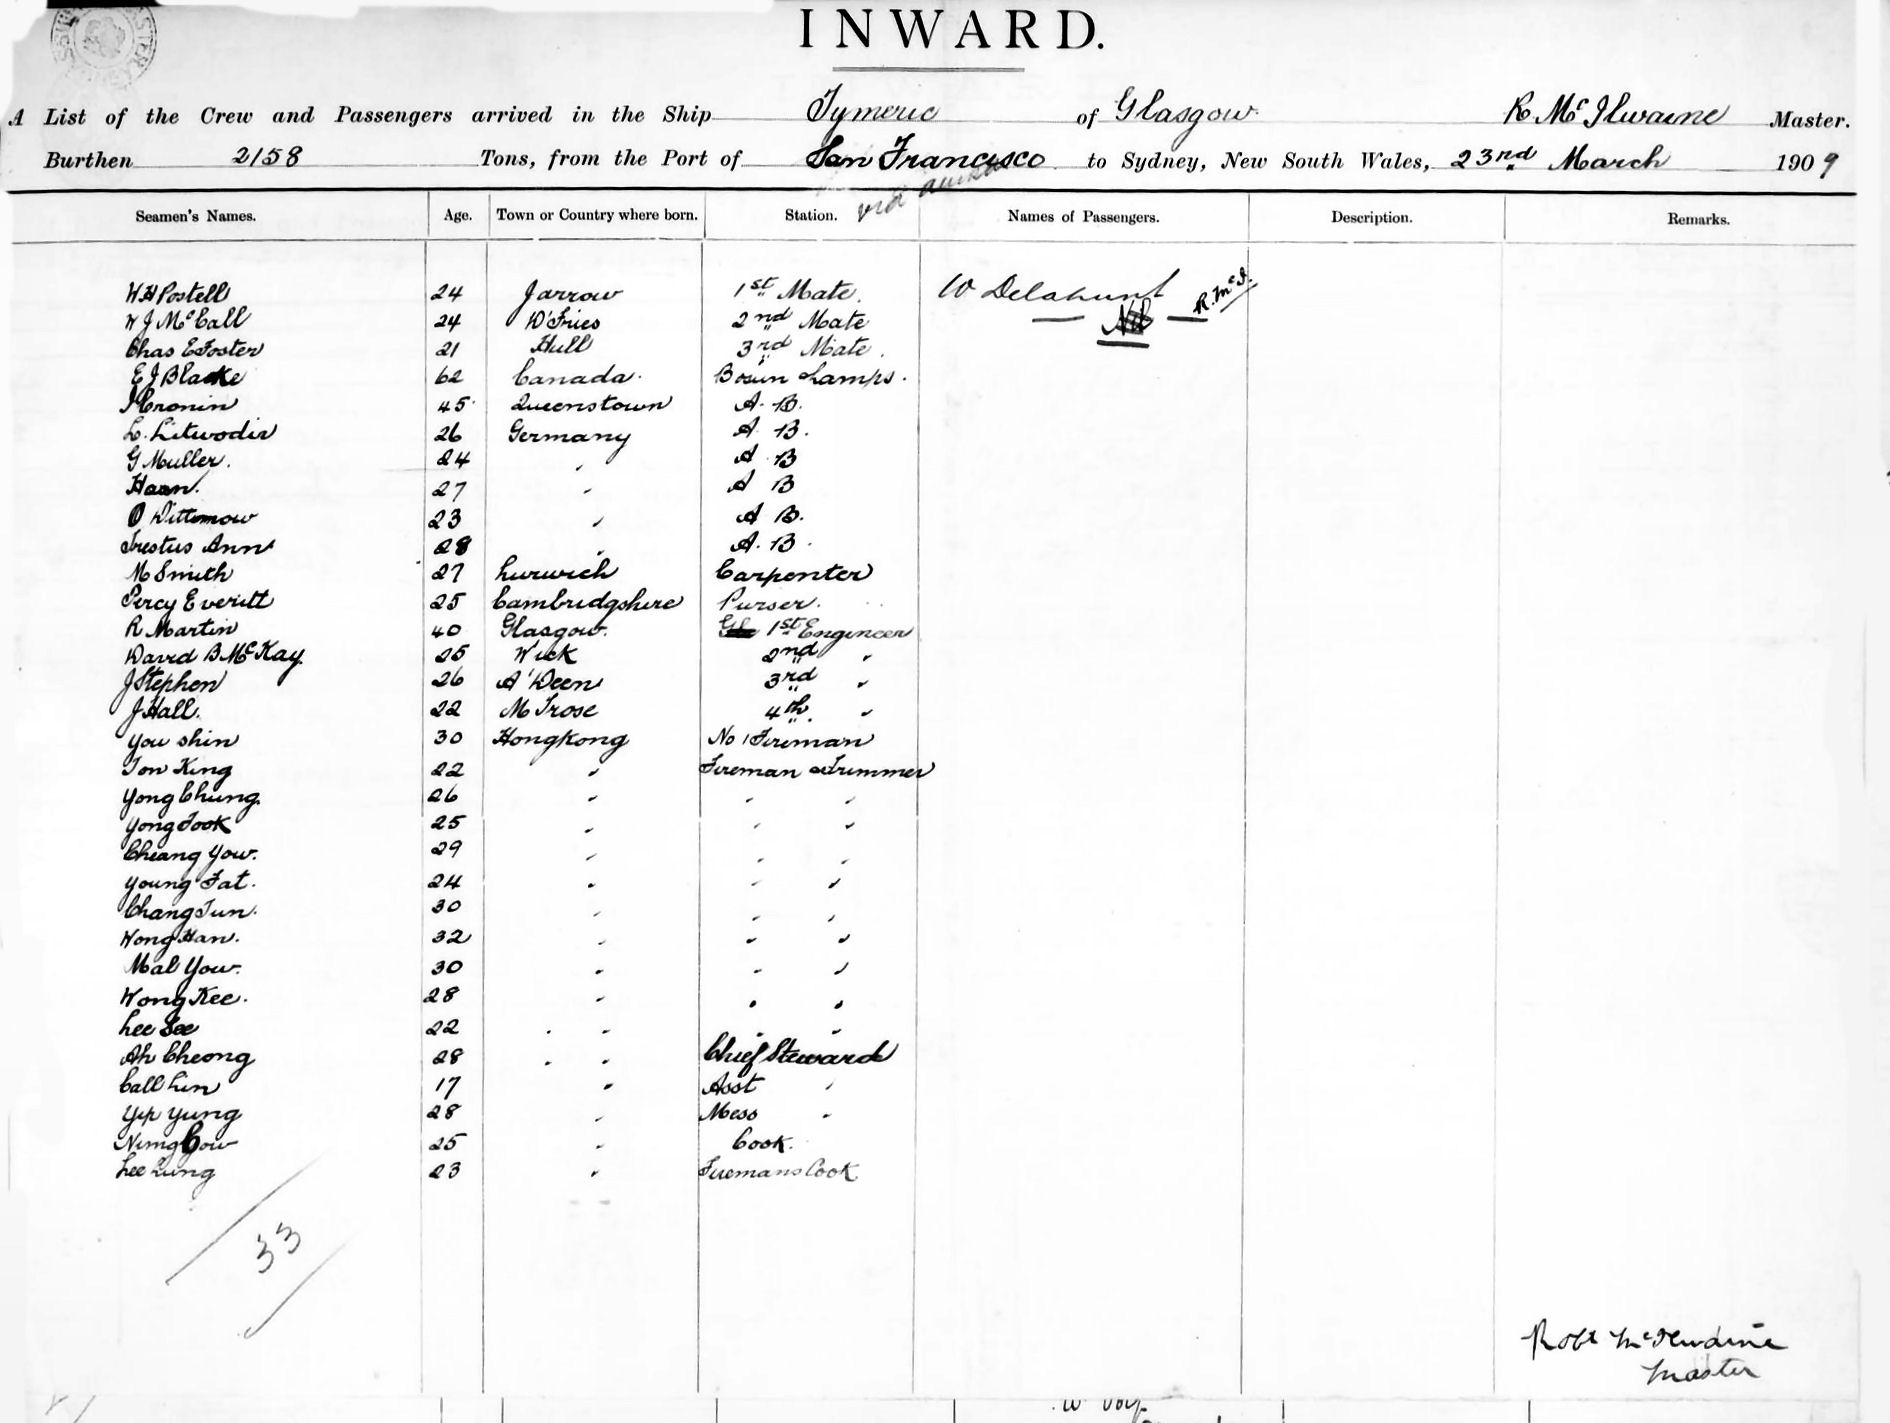 INWARD.
A List of the Crew and Passengers arrived in the Ship Tymeric of Glasgow R McIlwaine Master.
Burthen 2158 Tons, from the Port of San Francisco to Sydney, New South Wales, 23rd March 1909
via
Seamen's Names. Age. Town or Country where born. Station. Names of Passengers. Description. Remarks.
W H Postell 24 Jarrow 1st Mate. W Delahunt R. McI.
W J McCall 24 D'Fries 2nd Mate Nil
Chas E Foster 21 Hull 3rd Mate.
E J Blacke 62 Canada. Bosun Lamps.
J Cronin 45 Queenstown A. B.
L. Litwodir 26 Germany A. B.
G Muller. 24 " A B
Haan. 27 " A B
O Wittmow 23 " A B.
Frestus Ann 28 " A. B.
M Smith 27 Lurwich Carpenter
Percy Everitt 25 Cambridgshire Purser.
R Martin 40 Glasgow. 1st Engineer
David B McKay. 25 Wick 2nd "
J Stephen 26 A'Deen 3rd "
J Hall. 22 M'Trose 4th "
You Shin 30 Hongkong No 1 Fireman
Ton King 22 " Fireman & Trimmer
Yong Chung. 26 " " "
Yong Fook 25 " " "
Cheang Yow. 29 " " "
Young Fat. 24 " " "
Chang Tun. 30 " " "
Wong Han. 32 " " "
Mal Yow. 30 " " "
Wong Kee. 28 " " "
Lee See 22 " " "
Ah Cheong 28 " Chief Steward
Call Lin 17 " Asst "
Yip Yung 28 " Mess "
Nimg Cow 25 " Cook.
Lee Lung 23 " Firemans Cook
33
Robt McIlwaine
Master